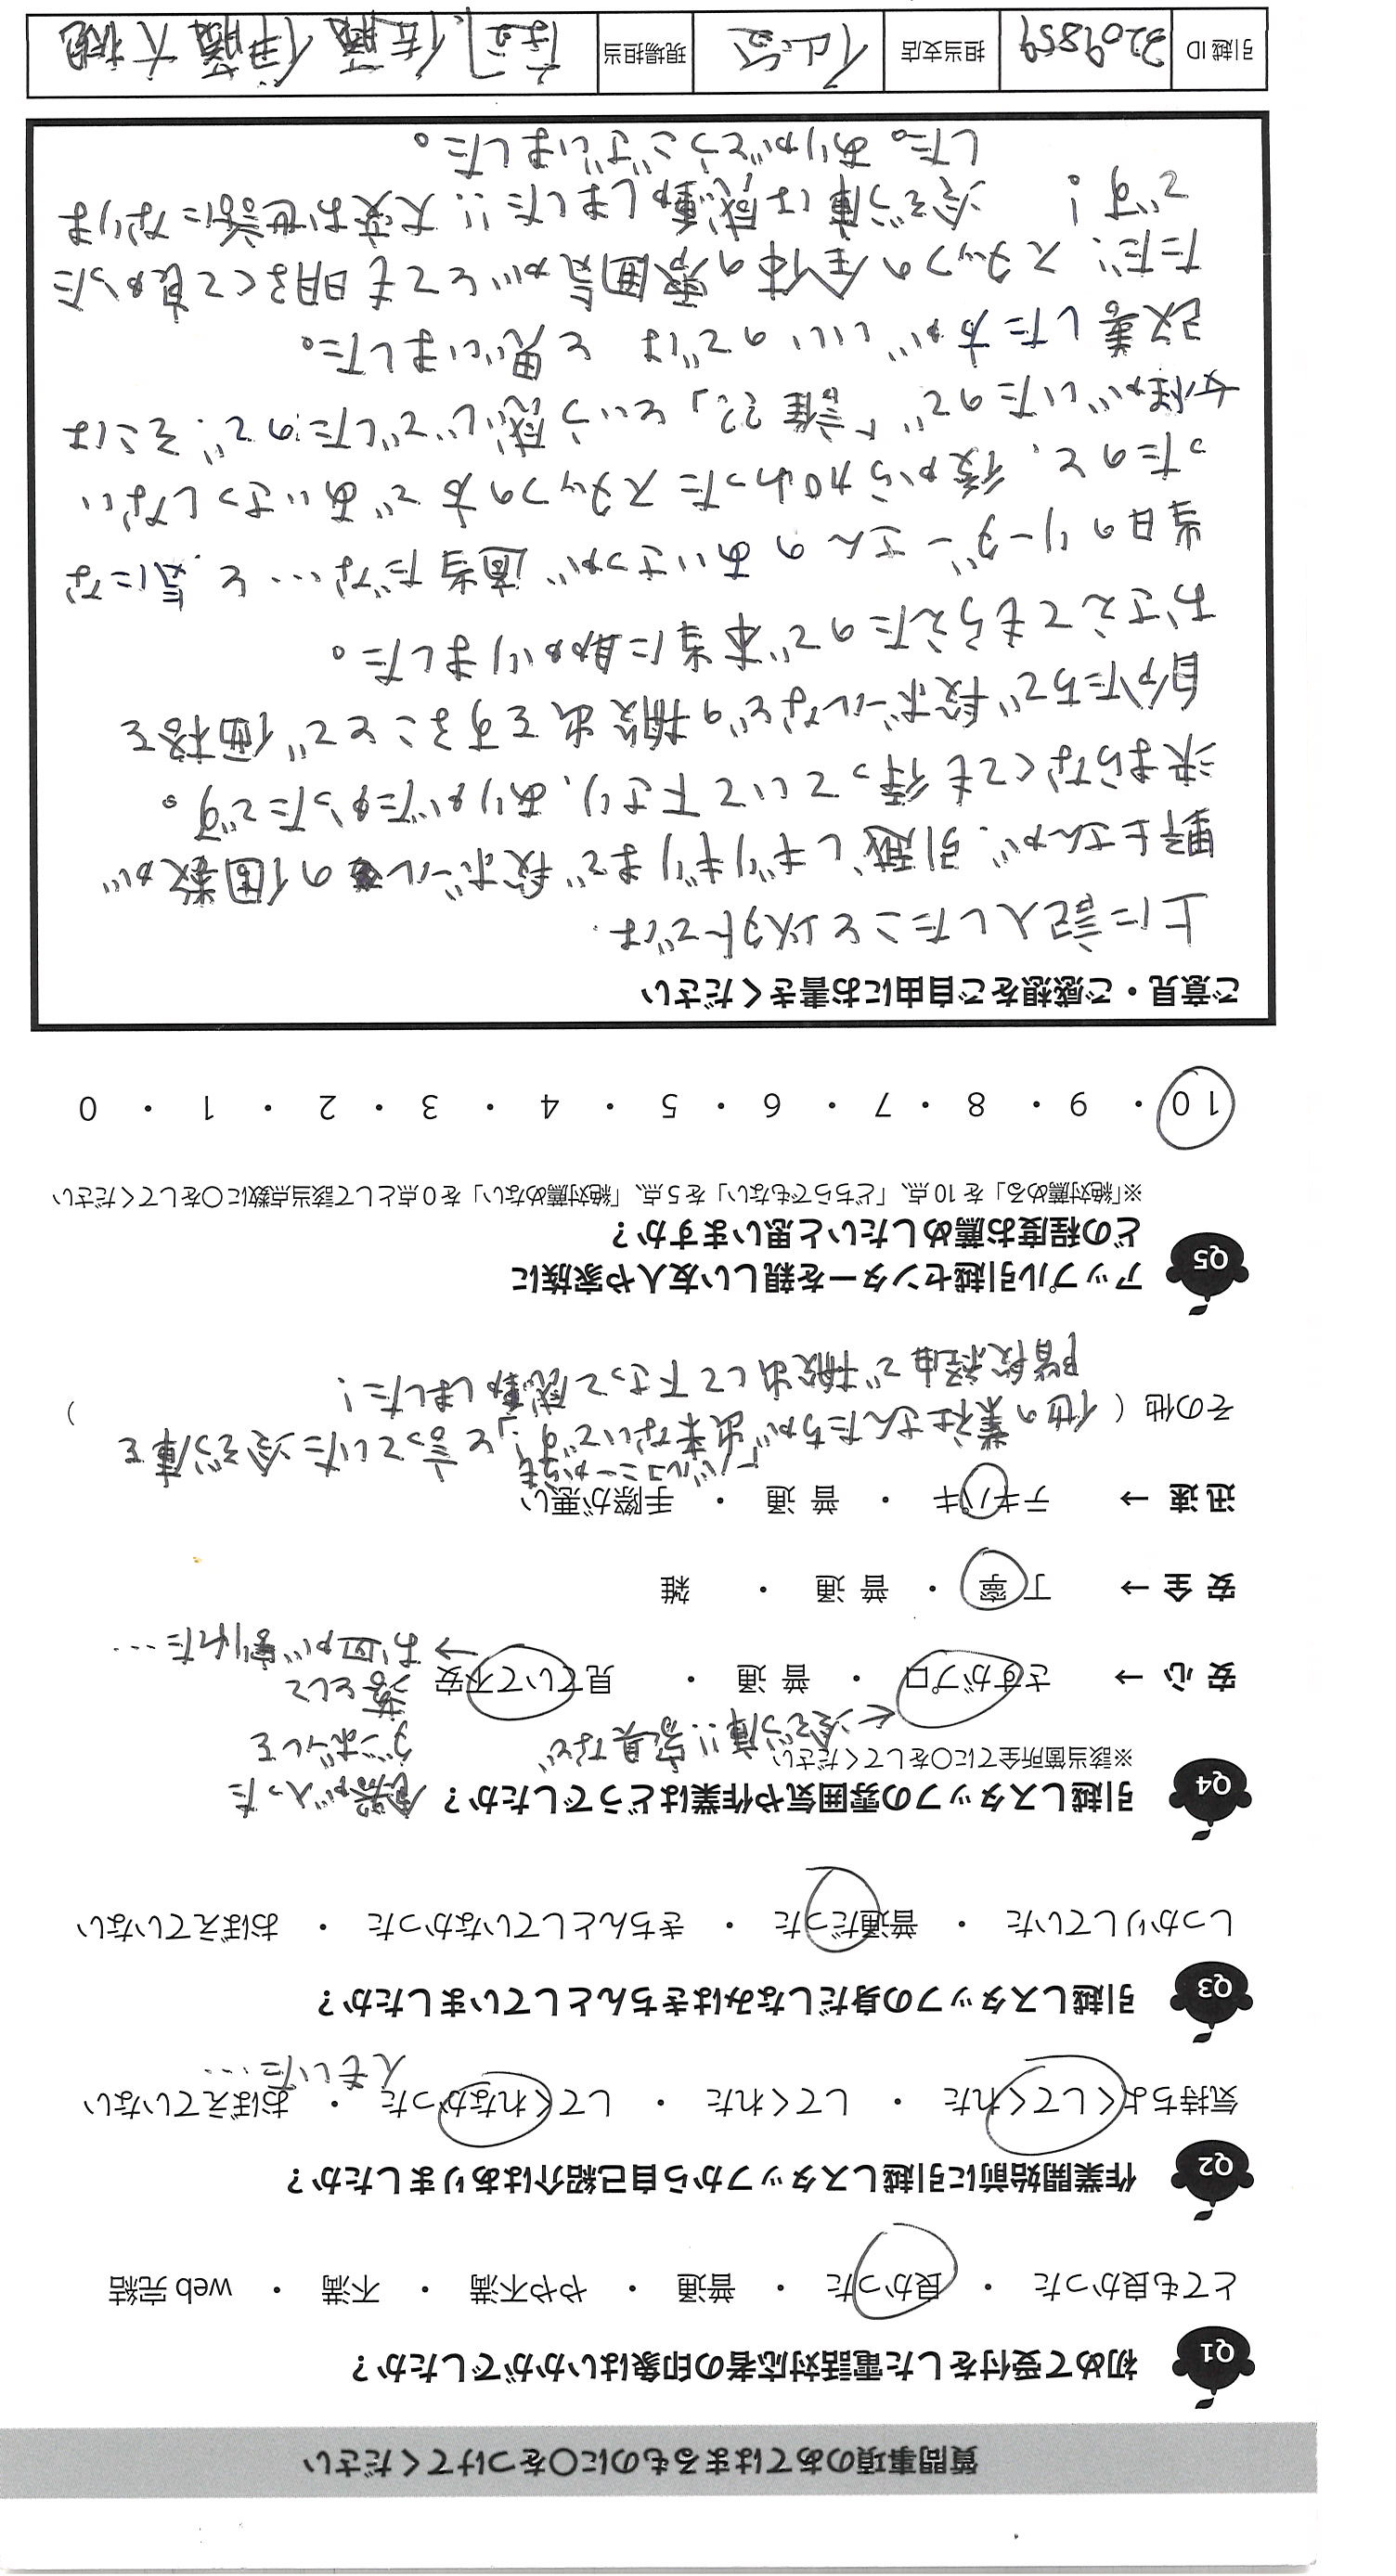 質問事項のあてはまるものに〇をつけてください
Q1 初めて受付をした電話対応者の印象はいかがでしたか？
とても良かった ・ 良かった ・ 普通 ・ やや不満 ・ 不満 ・ web 完結
Q2 作業開始前に引越しスタッフから自己紹介はありましたか？
気持ちよくしてくれた ・ してくれた ・ してくれなかった ・ おぼえていない
人もいた…
Q3 引越しスタッフの身だしなみはきちんとしていましたか？
しっかりしていた ・ 普通だった ・ きちんとしていなかった ・ おぼえていない
Q4 引越しスタッフの雰囲気や作業はどうでしたか？
※該当箇所全てに〇をしてください
←冷ぞう庫!!家具など
食器が入った
ダンボールを
落として
→お皿が割れた…
安 心 → さすがプロ ・ 普 通 ・ 見ていて不安
安 全 → 丁 寧 ・ 普 通 ・ 雑
迅 速 → テキパキ ・ 普 通 ・ 手際が悪い
その他（ 他の業社さんたちが「バルコニーからも出来ないです」と言っていた冷ぞう庫を
階段経由で搬出して下さって感動しました！ ）
Q5 アップル引越センターを親しい友人や家族に
どの程度お薦めしたいと思いますか？
※「絶対薦める」を 10 点、「どちらでもない」を 5 点、「絶対薦めない」を 0 点として該当点数に〇をしてください
10 ・ 9 ・ 8 ・ 7 ・ 6 ・ 5 ・ 4 ・ 3 ・ 2 ・ 1 ・ 0
ご意見・ご感想をご自由にお書きください
上に記入したこと以外では、
野上さんが、引越しギリギリまで段ボールの個数が
決まらなくても待っていて下さり、ありがたかったです。
自分たちで段ボールなどの搬出をすることで価格を
おさえてもらえたので本当に助かりました。
当日のリーダーさんのあいさつが適当だな…と気にな
ったのと、後から加わったスタッフの方であいさつしない
女性がいたので「誰??」という感じでしたので、そこは
改善した方がいいのでは と思いました。
ただ、スタッフの全体の雰囲気がとても明るくて良かった
です！ 冷ぞう庫は感動しました!!大変お世話になりま
した。ありがとうございました。
引越 ID 3209859 担当支店 仙台 現場担当 佐藤 伊藤 大槻